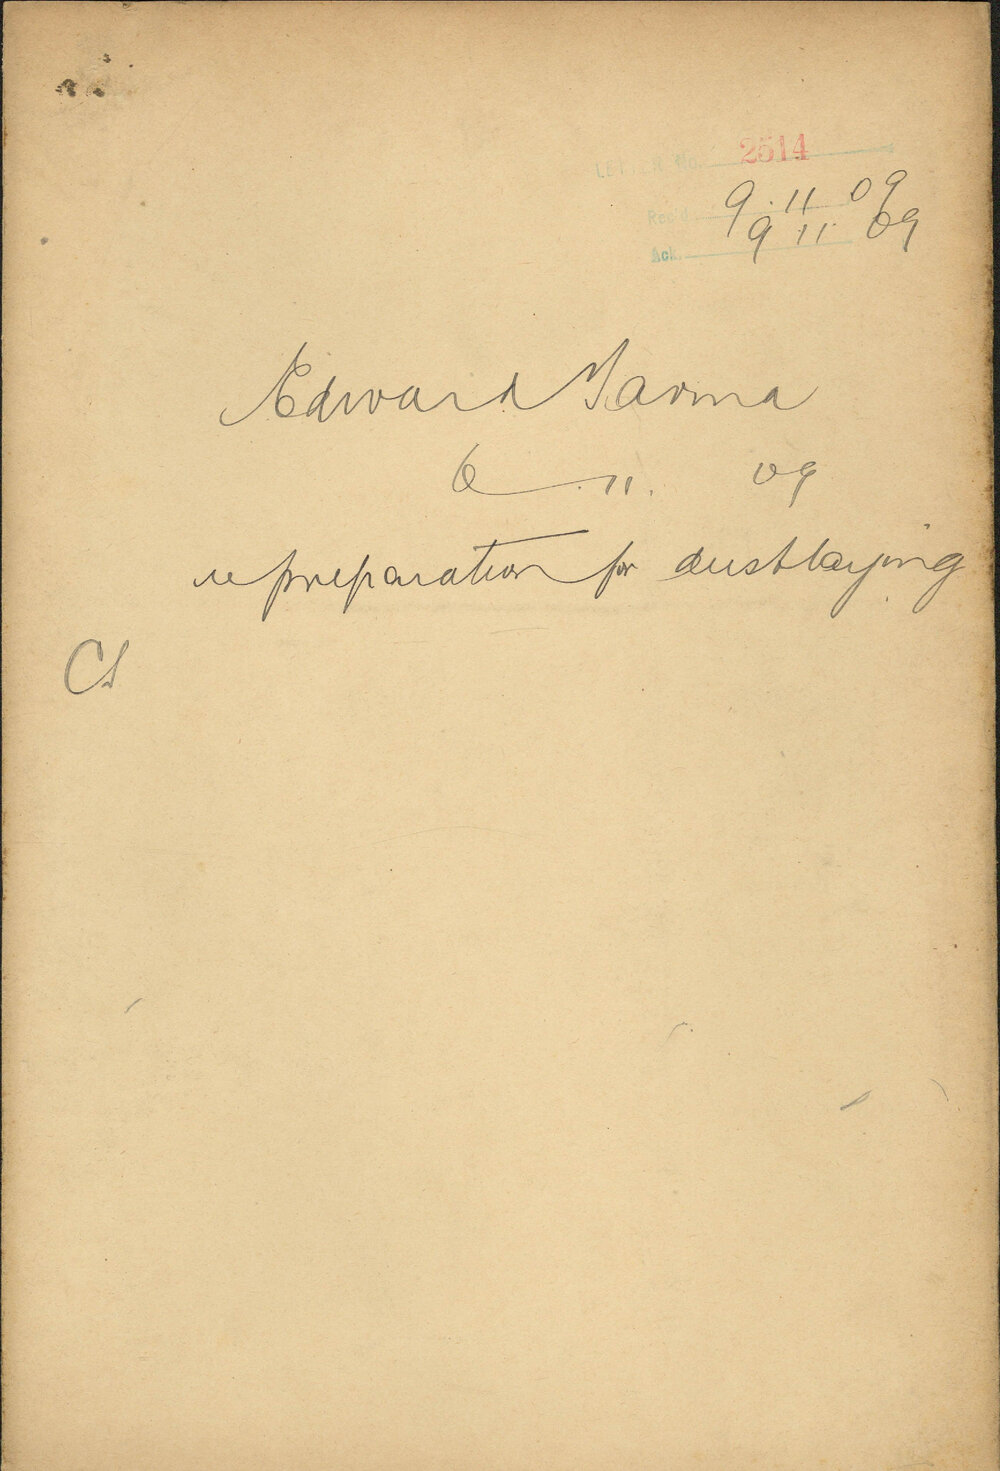 LETTER No. 2514
Rec'd 9.11 09
Ack. 9 11 09
Edward Tarma
6 - 11. 09
re preparation for dustlaying